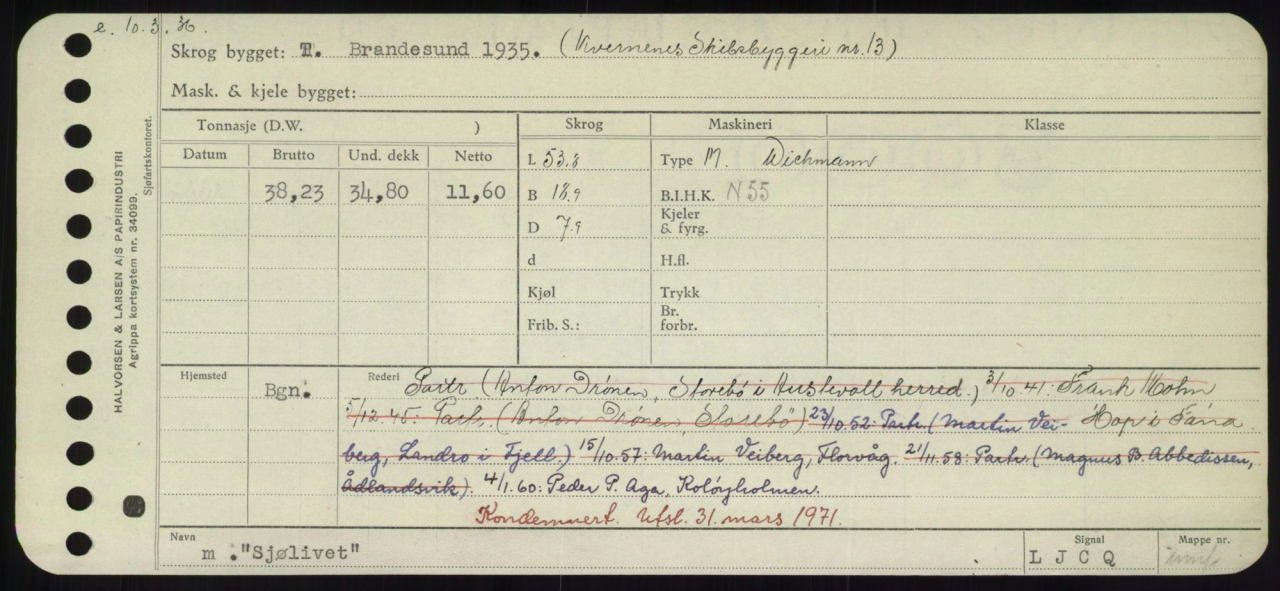 e. 10.3.36.
Skrog bygget: T. Brandesund 1935. (Kvernenes Skibsbyggeri nr. 13)
Mask. & kjele bygget:
Tonnasje (D.W. ) Skrog Maskineri Klasse
Datum Brutto Und. dekk Netto L 53.8 Type M. Wichmann
38,23 34,80 11,60 B 18.9 B.I.H.K. N 55
D 7.9 Kjeler & fyrg.
d H.fl.
Kjøl Trykk
Frib. S.: Br. forbr.
Hjemsted Bgn. Rederi Partr. (Anton Drönen, Storebö i Austevoll herred.) 3/10.41: Frank Mohn
5/12.45: Partr. (Anton Drönen, Storebö) 23/10.52: Partr. (Martin Vei- Hop i Fana
berg, Landro i Fjell.) 15/10.57: Martin Veiberg, Florvåg. 21/11.58: Partr. (Magnus B. Abbedissen,
Ådlandsvik). 4/1.60: Peder P. Aga, Koløyholmen.
Kondemnert. Utsl. 31. mars 1971.
Navn m. "Sjølivet" Signal LJCQ Mappe nr.
HALVORSEN & LARSEN A/S PAPIRINDUSTRI
Agrippa kortsystem nr. 34099.
Sjøfartskontoret.